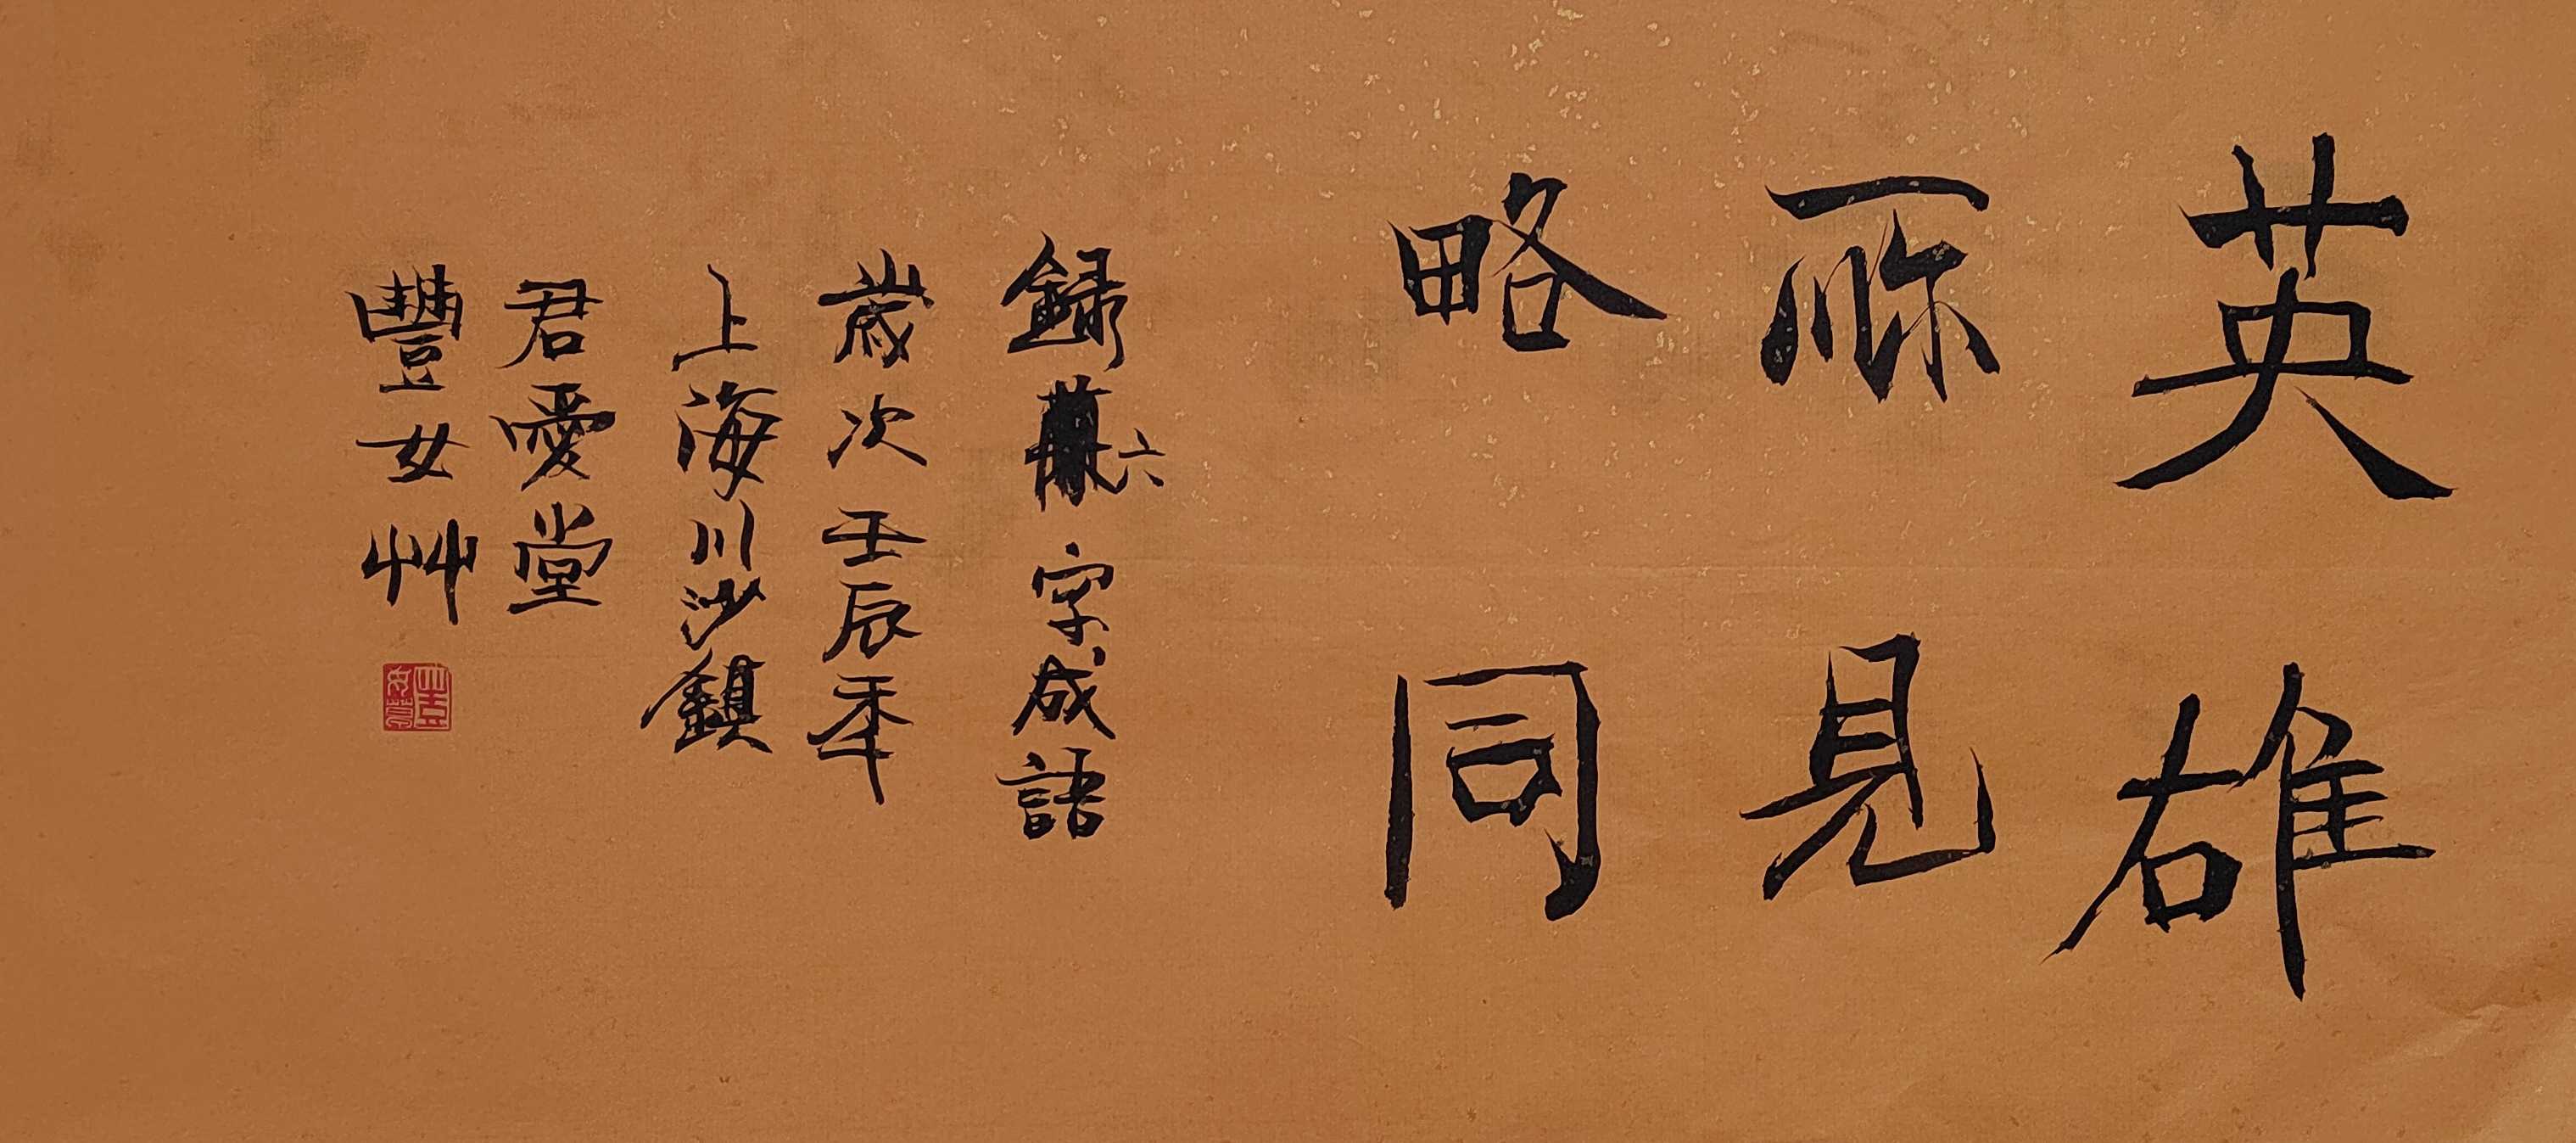 英雄
所見
略同
録六字成語
歲次壬辰年
上海川沙鎮
君愛堂
豐女艸